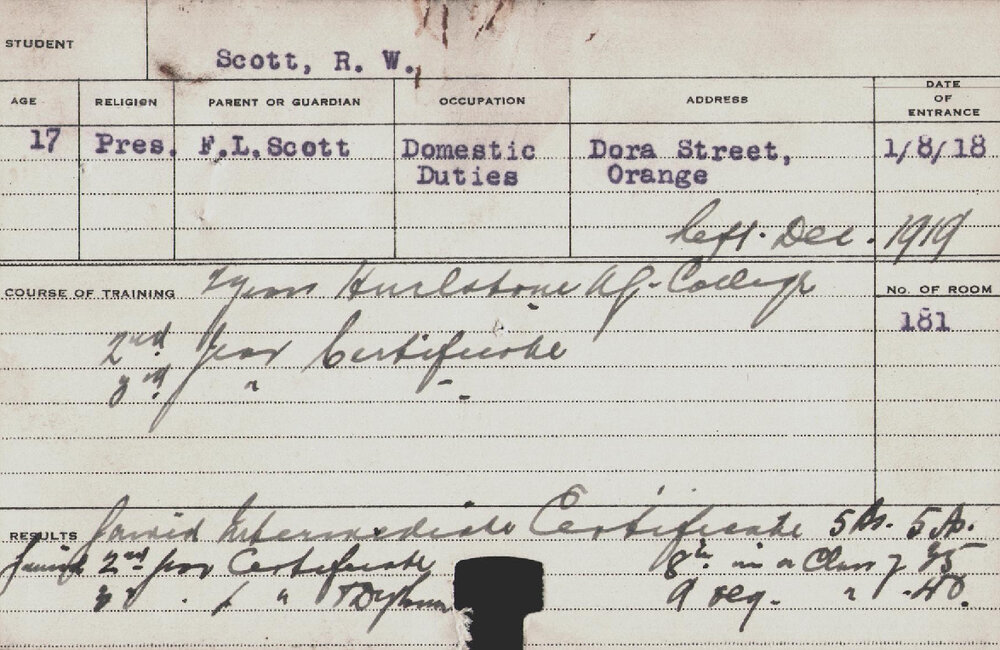 STUDENT
Scott, R. W.
AGE RELIGION PARENT OR GUARDIAN OCCUPATION ADDRESS DATE OF ENTRANCE
17 Pres. F.L.Scott Domestic Dora Street, 1/8/18
Duties Orange
Left. Dec. 1919
COURSE OF TRAINING Hurlstone Ag. College NO. OF ROOM
181
2nd Year Certificate
3rd " "
RESULTS Gained Intermediate Certificate 5 Bs. 5 As.
Gained 2nd Year Certificate 8th in a Class of
3rd " " & Diploma 9 "